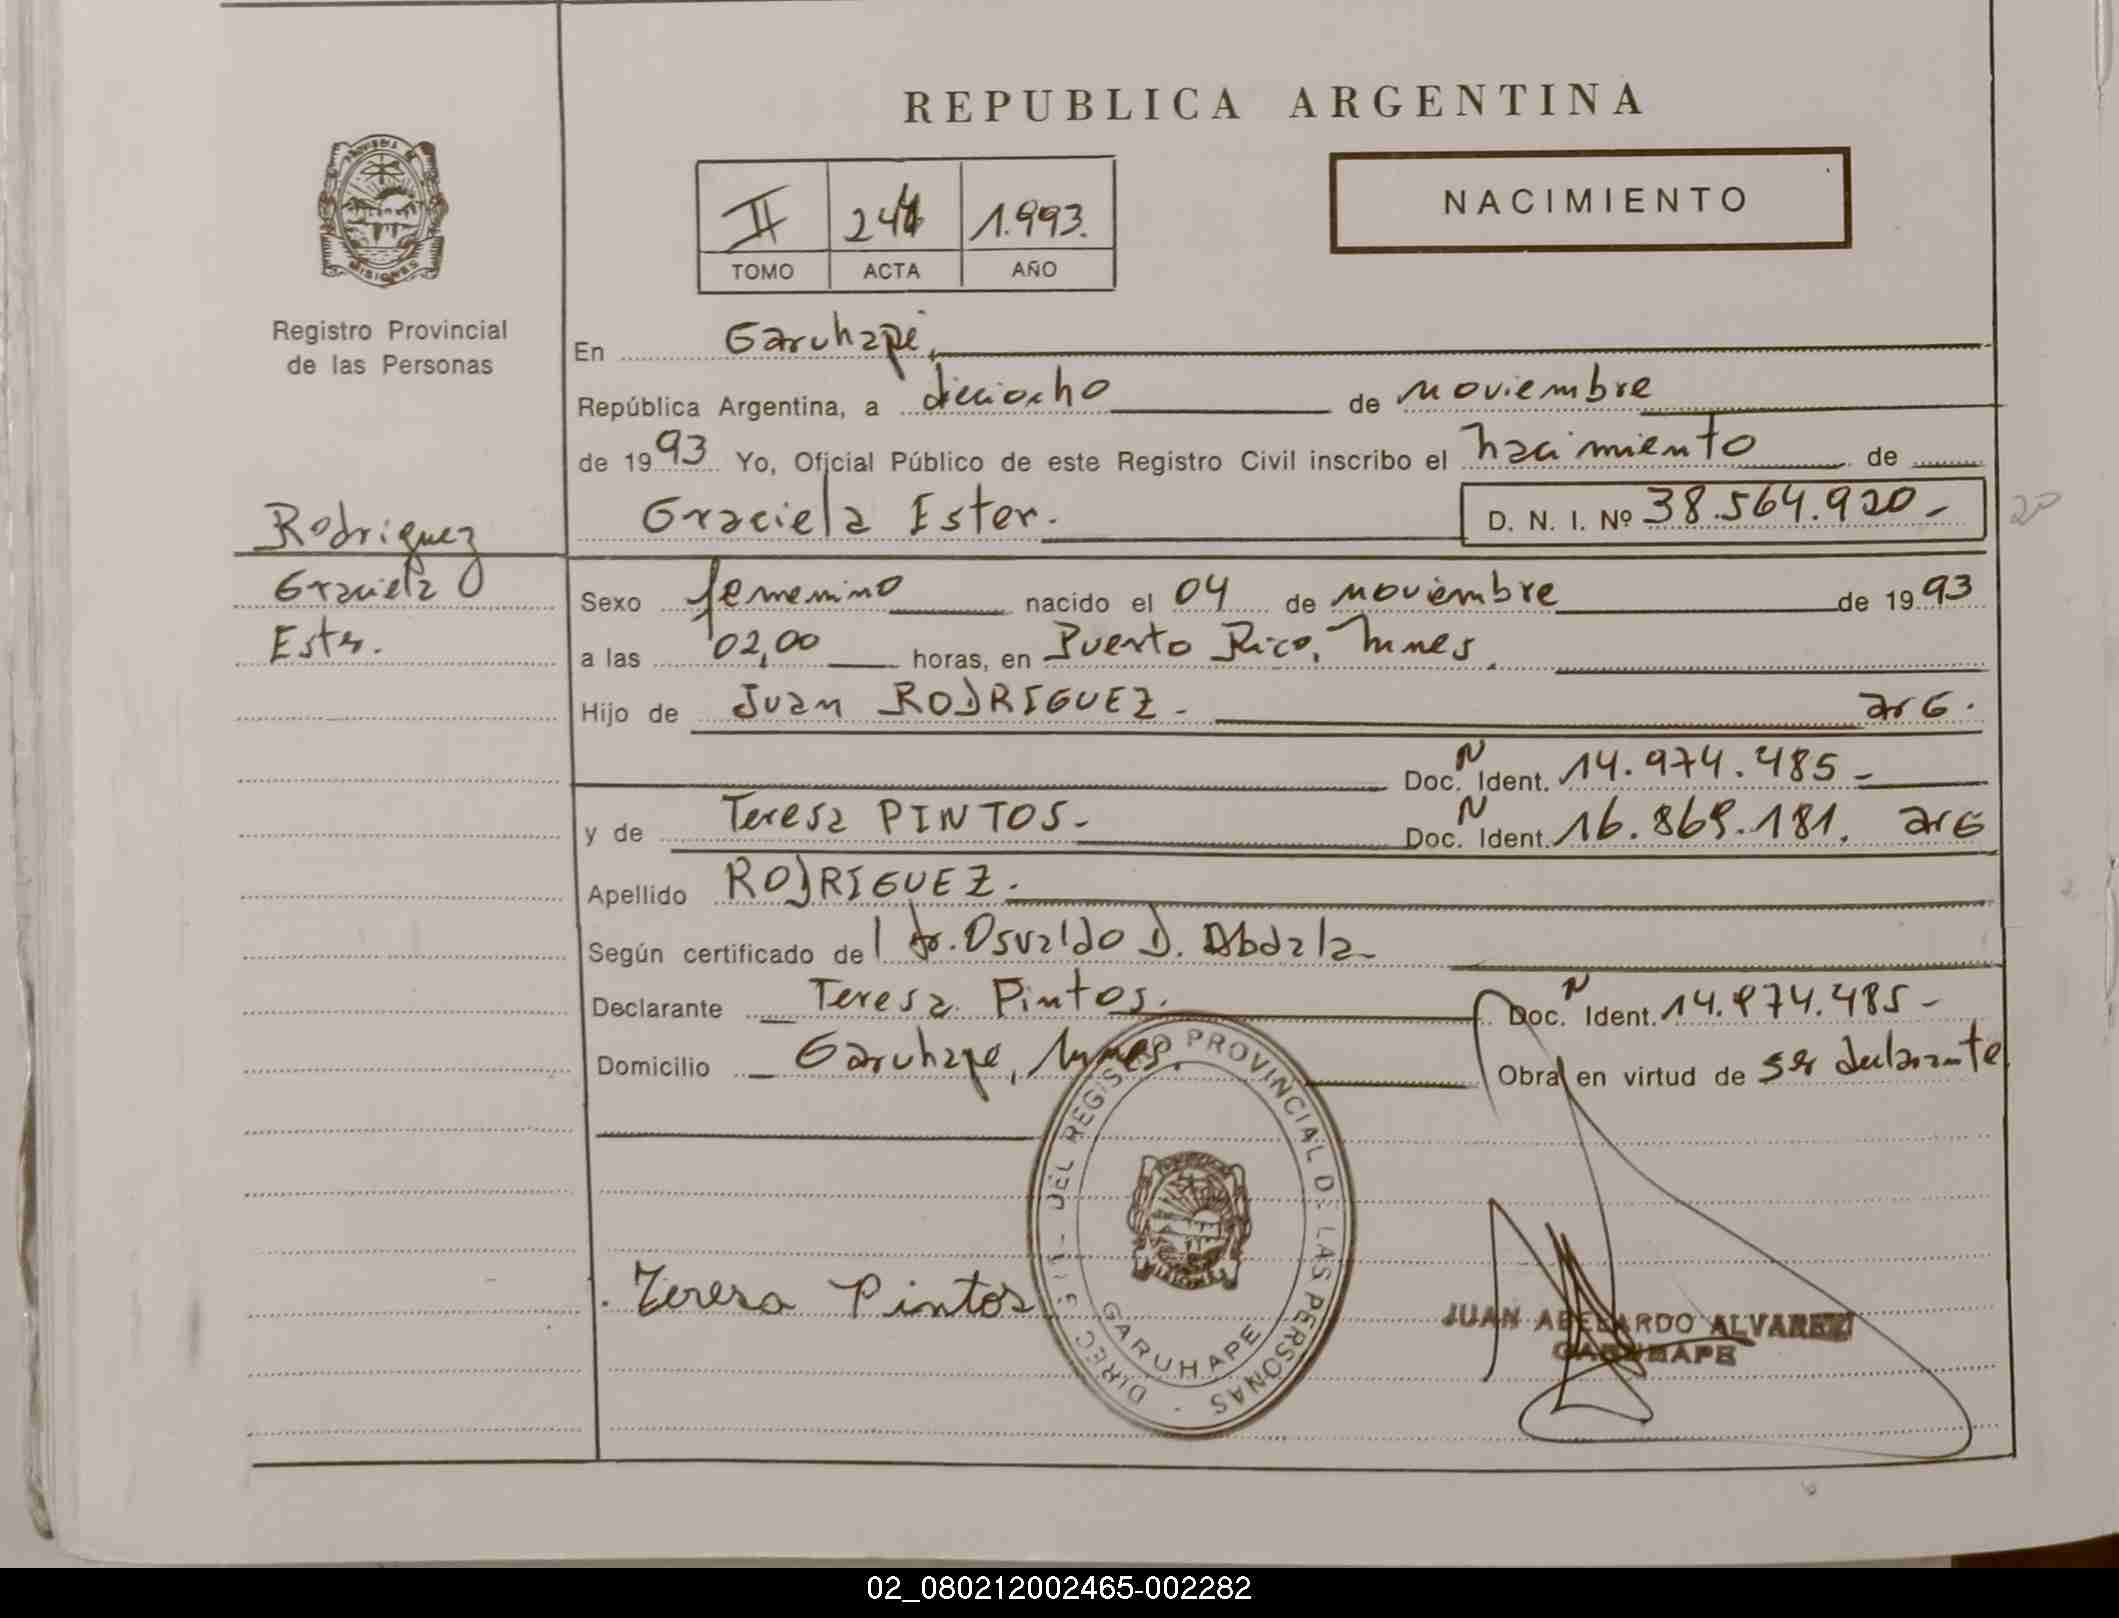 REPUBLICA ARGENTINA
NACIMIENTO
II 1.993.
TOMO ACTA AÑO
PROVINCIA DE
MISIONES
Registro Provincial
de las Personas
En Garuhapé,
República Argentina, a dieciocho de noviembre
de 1993 Yo, Oficial Público de este Registro Civil inscribo el nacimiento de
Graciela Ester. D. N. I. Nº 38.564.920 - 20
Rodriguez
Graciela
Ester.
Sexo femenino nacido el 04 de noviembre de 1993
a las 02,00 horas, en Puerto Rico,
Hijo de Juan RODRIGUEZ - arG.
Doc. N Ident. 14.974.485 -
y de Teresa PINTOS - Doc. N Ident. 16.869.181. arG
Apellido RODRIGUEZ.
Según certificado del dr. Osvaldo D. Abdala -
Declarante Teresa Pintos. Doc. N Ident. 14.974.485 -
Domicilio Garuhape, Obra en virtud de ser declarante
DIREC. GTL. DEL REGISTRO PROVINCIAL DE LAS PERSONAS -
MISIONES
GARUHAPE
Teresa Pintos
JUAN ABELARDO ALVAREZ
GARUHAPE
02_080212002465-002282